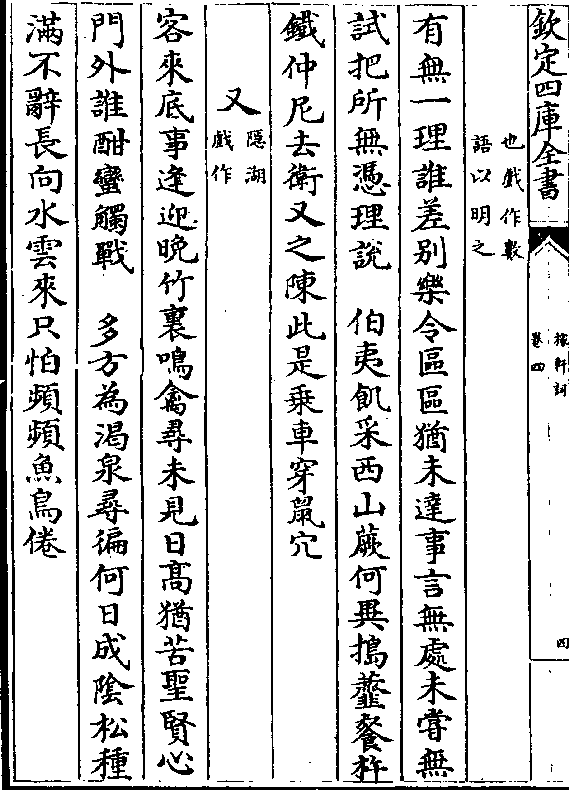 欽定四庫全書
稼軒詞
卷四
四
也戲作數
語以明之
有無一理誰差别樂令區區猶未達事言無處未甞無
試把所無憑理說　伯夷飢采西山蕨何異擣虀餐杵
鐵仲尼去衛又之陳此是乗車穿鼠穴
又
隱湖
戲作
客來底事逢迎晚竹裏鳴禽尋未見日髙猶苦聖賢心
門外誰酣蠻觸戰　多方為渴泉尋徧何日成陰松種
滿不辭長向水雲來只怕頻頻魚鳥倦